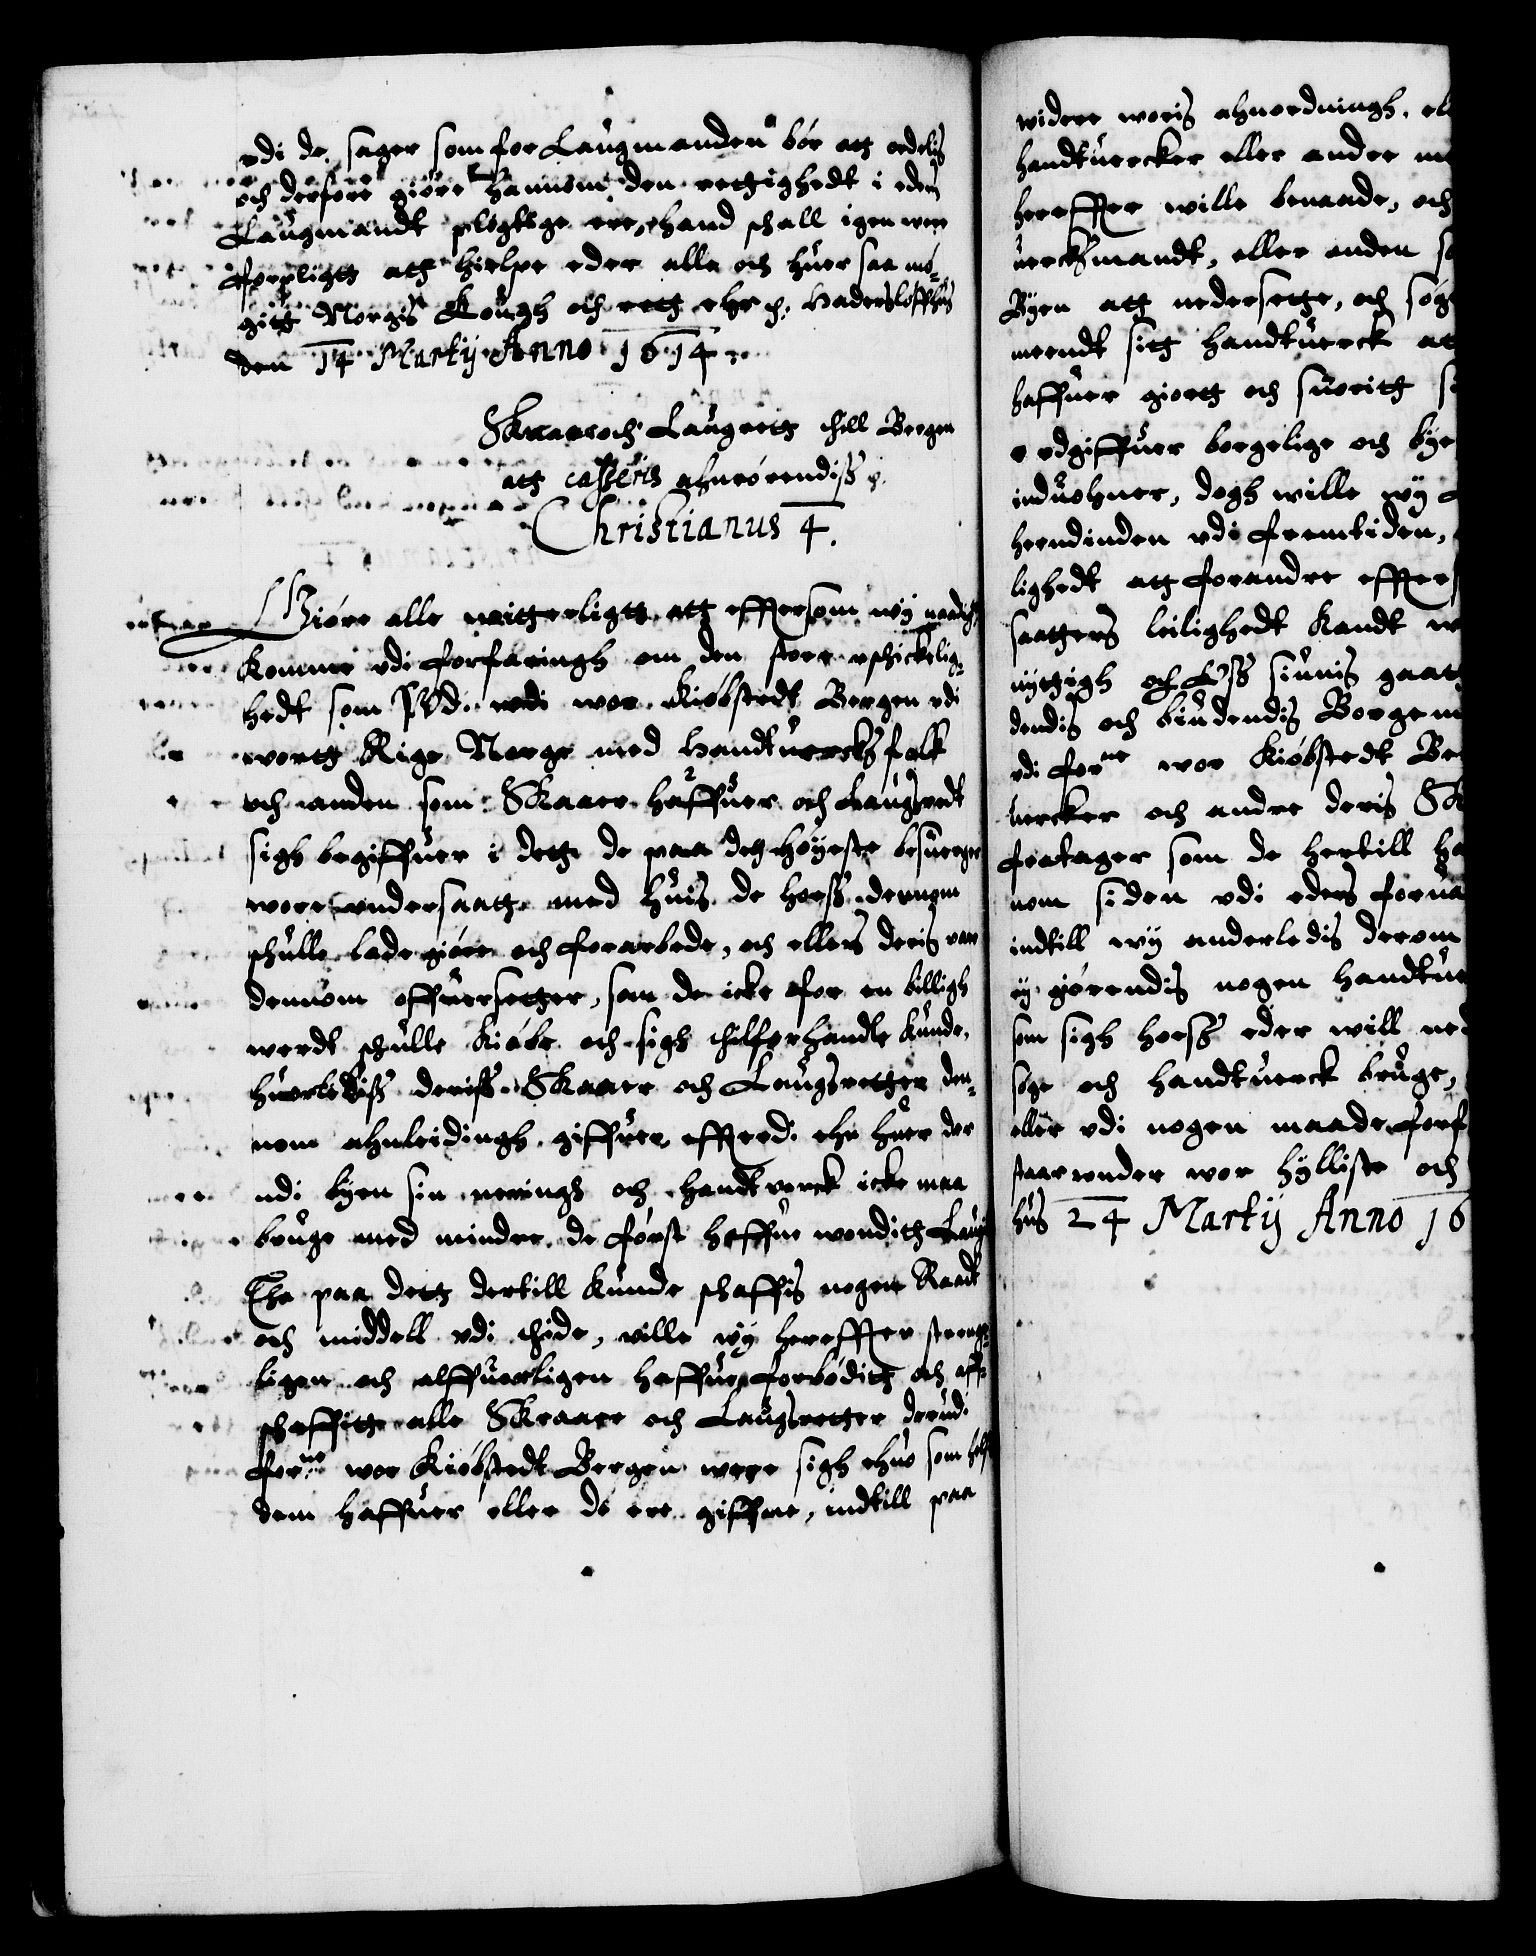 vdi de sager som for Laugmanden bör att ordelis
och derfore giöre hannom den rettighedt i eders
Laugmandt plegtige ere, hand schall igen vere
forpligtt att hielpe eder alle och huer saa mö-
gitt Norgis Lough och rett ehr p. Hadersloffhus
den 14 Martij Anno 1614
Skraaer och Laugrett thill Bergen
att casseris ahnrörendiss p.
Christianus 4.
Giöre alle witterligtt att efftersom wij naadigst
komme vdi forfaringh om den store vschickelig-
hedt som vdi wor kiöbstedt Bergen vdi
wortt Rige Norge med handtuercksfolk
och anden som Skraaer haffuer och Laugsrett
sigh begiffuer i dett de paa det höyeste besuerger
wore vndersaatte med huis de hoess dennom
schulle lade giöre och forarbede, och ellers deris vare
dennom offuersetter, som de icke for en billigh
werdt schulle kiöbe och sigh thilforhandle kunde,
huorledis deriss Skraaer och Laugsretter den-
nom ahnleidingh giffuer effterdi ehn huer der
udi byen sin nerings och handtverck icke maa
bruge med mindre de först haffue wondith Laug
Tha paa dett dertill kunde schaffis nogen Raadt
och middell vdi thide, ville wij hereffter streng-
ligen och alffuorligen haffue forbödith och aff-
schaffitt alle Skraaer och Laugsretter derudi
forne wor Kiöbstedt Bergen were sigh ehuo som helst
dem haffuer eller de ere giffne, indtill paa
widere woris ahnordningh, ell
handtuercker eller andre me
hereffter wille benaade, och
uerckmandt, eller anden so
Byen att nedersette, och sög
meendt sitt handtuerck at
haffuer giortt och suoritt s
e vdgiffuer borgelige och bye
induohner, dogh wille wij
heendinden vdi fremtiden,
lighedt att forandre effters
saatters leilighedt kandt we
nyttigh och Oss siunis gaatt
dendis och biudendis Borgem
vdi forne wor Kiöbstedt Be
tuercker och andre deris Sk
fratager som de hertill ha
nom siden vdi eders forua
indtill wij anderledis derom
ey görendis nogen handtue
som sigh hoess eder will ned
söge och handtuerck bruge,
eller vdi nogen maade forf
staar wnder wor hylliste och
hus 24 Martij Anno 16